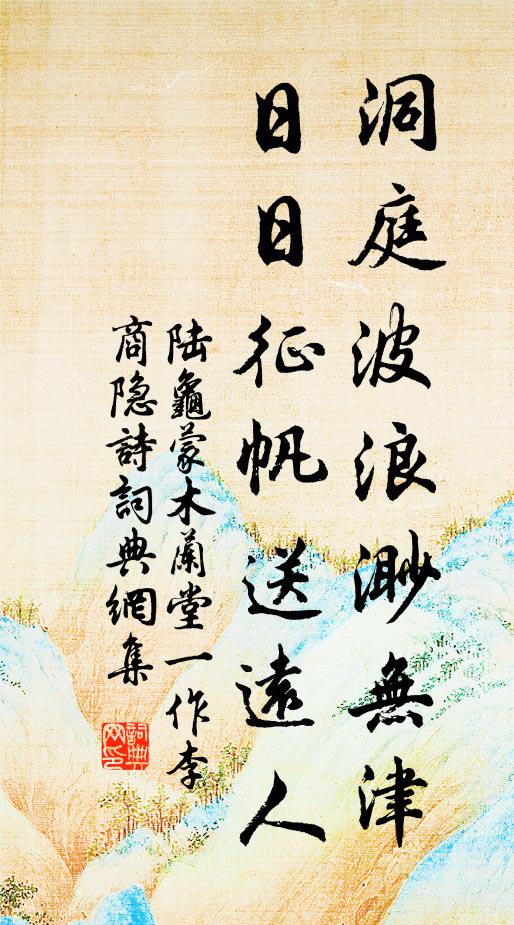 洞庭波浪渺無津
日日征帆送遠人
陆龜蒙木蘭堂一作李
商隐詩詞典網集
詞典
网印